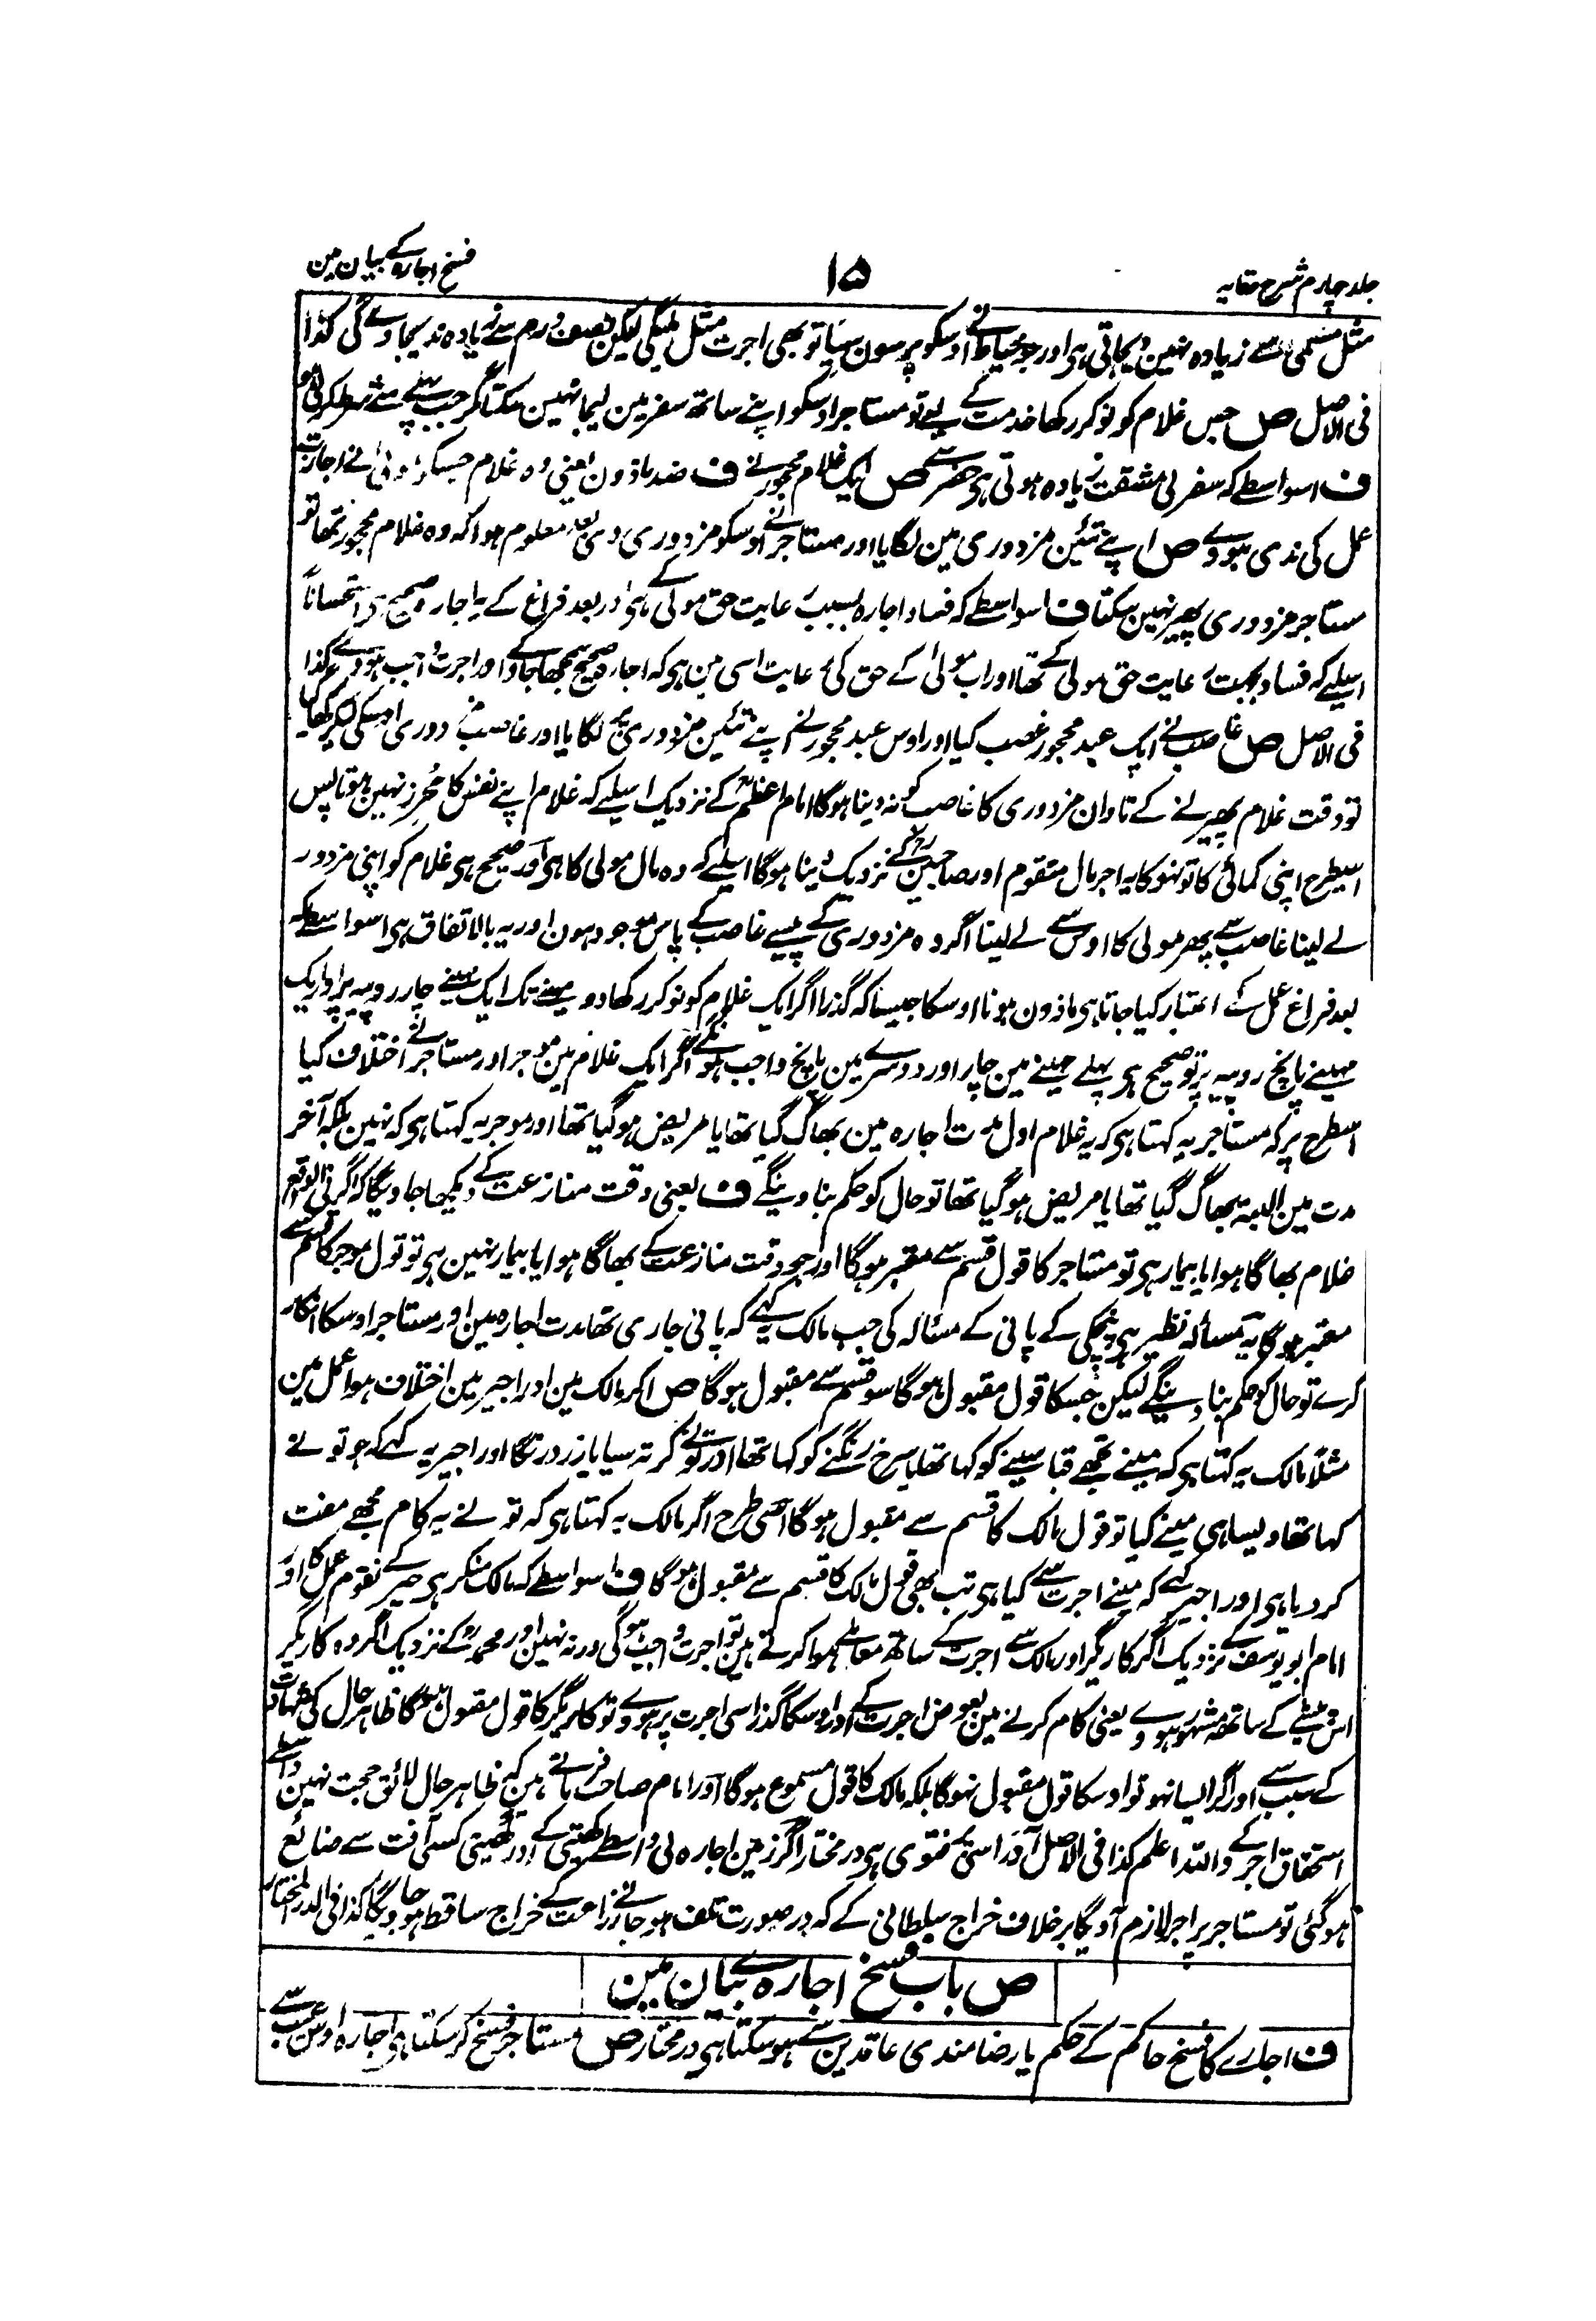 جلد چارم شرح وقایہ
۱۵
فسخ اجارہ کے بیان مین
مثل مسمی سے زیادہ نہین دیجاتی ہی اور جو خیاط نے اوسکو پرسون سیا تو بھی اجرت مثل ملیگی لیکن نصف درم سے زیادہ ندیجاویگی کذا
فی الاصل ص جس غلام کو نوکر رکھا خدمت کے لیے تو مستاجر اوسکو اپنے ساتھ سفر مین لیجا نہین سکتا مگر جب پہلے سے شرط کرلی ہو
ف اسواسطے کہ سفر کی مشقت زیادہ ہوتی ہی حضر سے ص ایک غلام محجور نے ف ضد ماذون یعنی وہ غلام جسکو مولی نے اجازت
عمل کی ندی ہووے ص اپنے تئین مزدوری مین لگایا اور مستاجر نے اوسکو مزدوری دی بعد معلوم ہوا کہ وہ غلام محجور تھا تو
مستاجر مزدوری پھیر نہین سکتا ف اسواسطے کہ فساد اجارہ بسبب رعایت حق مولی کے ہی اور بعد فراغ کے یہ اجارہ صحیح ہی استحساناً
اسلیے کہ فساد بجہت رعایت حق مولی کے تھا اور اب مولیٰ کے حق کی رعایت اسی مین ہی کہ اجارہ صحیح سمجھا جاوے اور اجرت واجب ہووے کذا
فی الاصل ص غاصب نے ایک عبد محجور غصب کیا اور اوس عبد محجور نے اپنے تئین مزدوری مین لگایا اور غاصب مزدوری اوسکی لیکر کھا گیا
تو وقت غلام پھیرنے کے تاوان مزدوری کا غاصب کو نہ دینا ہوگا امام اعظم کے نزدیک اسلیے کہ غلام اپنے نفس کا محرز نہین ہوتا پس
اسیطرح اپنی کمائی کا تو نہوگا یہ اجر مال متقوم اور صاحبین کے نزدیک دینا ہوگا اسلیے کہ وہ مال مولی کا ہی اور صحیح ہی غلام کو اپنی مزدوری
لے لینا غاصب سے پھر مولی کا اوس سے لے لینا اگر وہ مزدوری کے پیسے غاصب کے پاس موجود ہون اور یہ بالاتفاق ہی اسواسطے کہ
بعد فراغ عمل کے اعتبار کیا جاتا ہی ماذون ہونا اوسکا جیسا کہ گذرا اگر ایک غلام کو نوکر رکھا دو مہینے تک ایک مہینے چار روپیہ پر اور ایک
مہینے پانچ روپیہ پر تو صحیح ہی پہلے مہینے مین چار اور دوسرے مین پانچ واجب ہونگے اگر ایک غلام مین موجر اور مستاجر نے اختلاف کیا
اسطرح پر کہ مستاجر یہ کہتا ہی کہ یہ غلام اول مدت اجارہ مین بھاگ گیا تھا یا مریض ہوگیا تھا اور موجر یہ کہتا ہی کہ نہین بلکہ آخر
مدت مین البتہ بھاگ گیا تھا یا مریض ہوگیا تھا تو حال کو حکم بنا دینگے ف یعنی وقت منازعت کے دیکھا جاویگا کہ اگر فی الواقع
غلام بھاگا ہوا یا بیمار ہی تو مستاجر کا قول قسم سے معتبر ہوگا اور جو وقت منازعت کے بھاگا ہوا یا بیمار نہین ہی تو قول موجر کا قسم سے
معتبر ہوگا یہ مسألہ نظیر ہی پنچکی کے پانی کے مسألہ کی جب مالک یہ کہے کہ پانی جاری تھا مدت اجارہ مین اور مستاجر اوسکا انکار
کرے تو حال کو حکم بنا دینگے لیکن جسکا قول مقبول ہوگا سو قسم سے مقبول ہوگا ص اگر مالک مین اور اجیر مین اختلاف ہوا عمل مین
مثلاً مالک یہ کہتا ہی کہ مینے تجھے قبا سینے کو کہا تھا یا سرخ رنگنے کو کہا تھا اور تو نے کرتہ سیا یا زرد رنگا اور اجیر یہ کہے کہ جو تو نے
کہا تھا ویسا ہی مینے کیا تو قول مالک کا قسم سے مقبول ہوگا اسی طرح اگر مالک یہ کہتا ہی کہ تو نے یہ کام مجھے مفت
کر دیا ہی اور اجیر کہے کہ مینے اجرت سے کیا ہی تب بھی قول مالک کا قسم سے مقبول ہوگا ف اسواسطے کہ مالک منکر ہی اجیر کے تقوم عمل کا اور
امام ابو یوسف کے نزدیک اگر کاریگر اور مالک سے اجرت کے ساتھ معاملے ہوا کرتے ہین تو اجرت واجب ہوگی ورنہ نہین اور محمد کے نزدیک اگر وہ کاریگر
اس پیشے کے ساتھ مشہور ہووے یعنی کام کرنے مین بعوض اجرت کے اور اوسکا گذرا اسی اجرت پر ہووے تو کاریگر کا قول مقبول ہوگا ظاہر حال کی شہادت
کے سبب سے اور اگر ایسا نہو تو اوسکا قول مقبول نہوگا بلکہ مالک کا قول مسموع ہوگا اور امام صاحب فرماتے ہین کہ ظاہر حال لائق حجت نہین واسطے
استحقاق اجر کے واللہ اعلم کذا فی الاصل اور اسی پر فتوی ہی در مختار اگر زمین اجارہ لی واسطے کھیتی کے اور کھیتی کسی آفت سے ضائع
ہوگئی تو مستاجر پر اجر لازم آویگا برخلاف خراج سلطانی کے کہ در صورت تلف ہو جانے زراعت کے خراج ساقط ہو جاویگا کذا فی الدر المختار
ص باب فسخ اجارہ کے بیان مین
ف اجارے کا فسخ حاکم کے حکم یا رضامندی عاقدین سے ہو سکتا ہی در مختار ص مستاجر فسخ کر سکتا ہی اجارہ اوس عیب سے